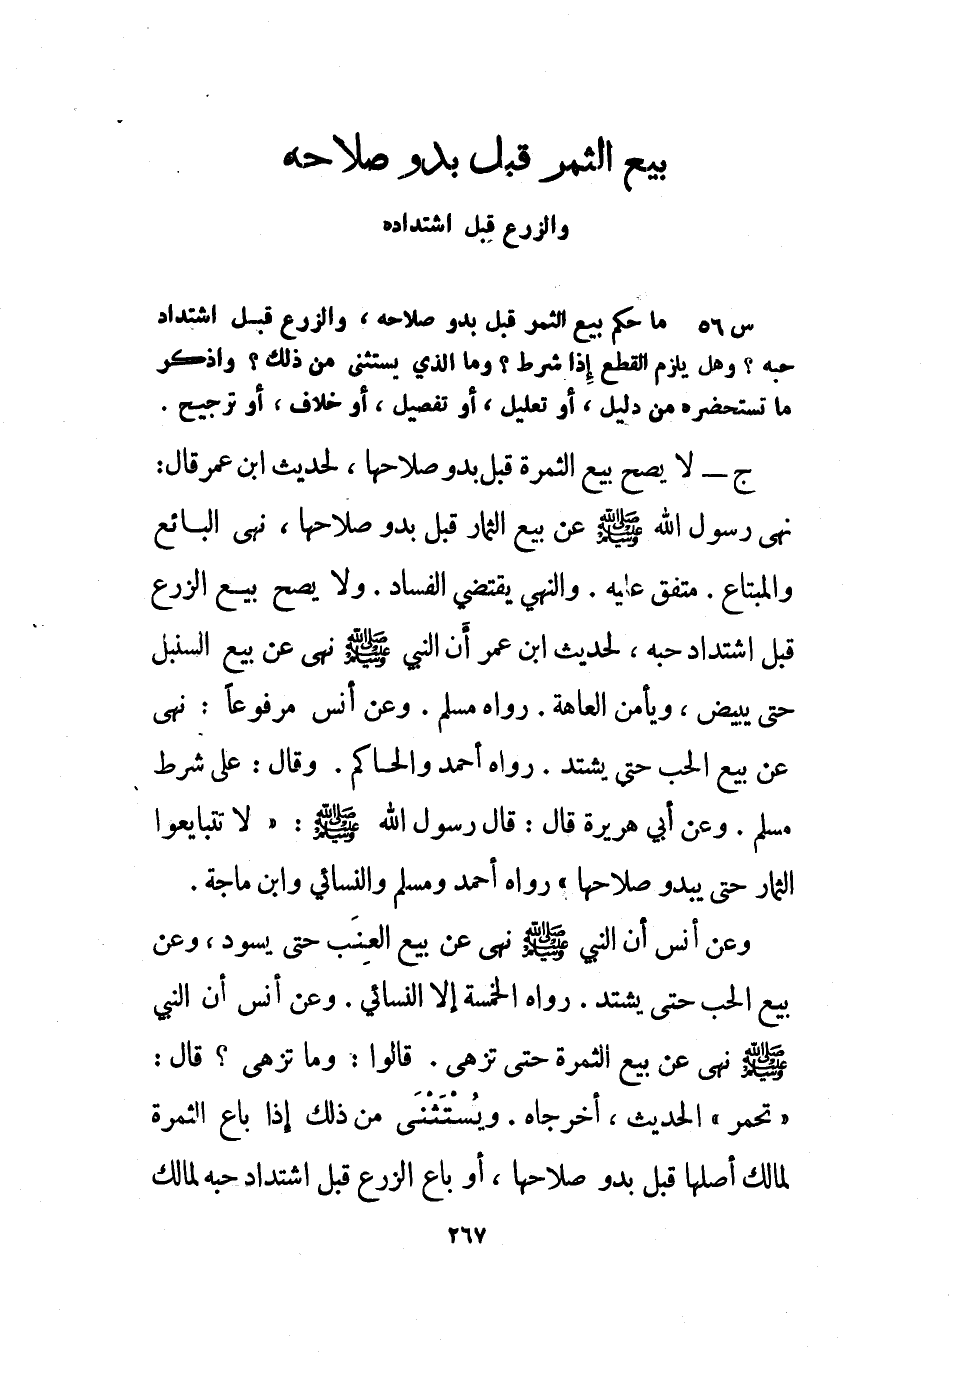 بيع الثمر قبل بدو صلاحه
والزرع قبل اشتداده
س ٥٦ ما حكم بيع الثمر قبل بدو صلاحه ، والزرع قبل اشتداد
حبه ؟ وهل يلزم القطع إذا شرط ؟ وما الذي يستثنى من ذلك ؟ واذكر
ما تستحضره من دليل ، أو تعليل ، أو تفصيل ، أو خلاف ، أو ترجيح .
ج – لا يصح بيع الثمرة قبل بدو صلاحها ، لحديث ابن عمر قال:
نهى رسول الله ﷺ عن بيع الثمار قبل بدو صلاحها ، نهى البائع
والمبتاع . متفق عليه . والنهي يقتضي الفساد . ولا يصح بيع الزرع
قبل اشتداد حبه ، لحديث ابن عمر أن النبي ﷺ نهى عن بيع السنبل
حتى يبيض ، ويأمن العاهة . رواه مسلم . وعن أنس مرفوعاً : نهى
عن بيع الحب حتى يشتد . رواه أحمد والحاكم . وقال : على شرط
مسلم . وعن أبي هريرة قال : قال رسول الله ﷺ : « لا تتبايعوا
الثمار حتى يبدو صلاحها » رواه أحمد ومسلم والنسائي وابن ماجة .
وعن أنس أن النبي ﷺ نهى عن بيع العِنَب حتى يسود ، وعن
بيع الحب حتى يشتد . رواه الخمسة إلا النسائي . وعن أنس أن النبي
ﷺ نهى عن بيع الثمرة حتى تزهى . قالوا : وما تزهى ؟ قال :
« تحمر » الحديث ، أخرجاه . ويُسْتَثْنَى من ذلك إذا باع الثمرة
لمالك أصلها قبل بدو صلاحها ، أو باع الزرع قبل اشتداد حبه لمالك
٢٦٧